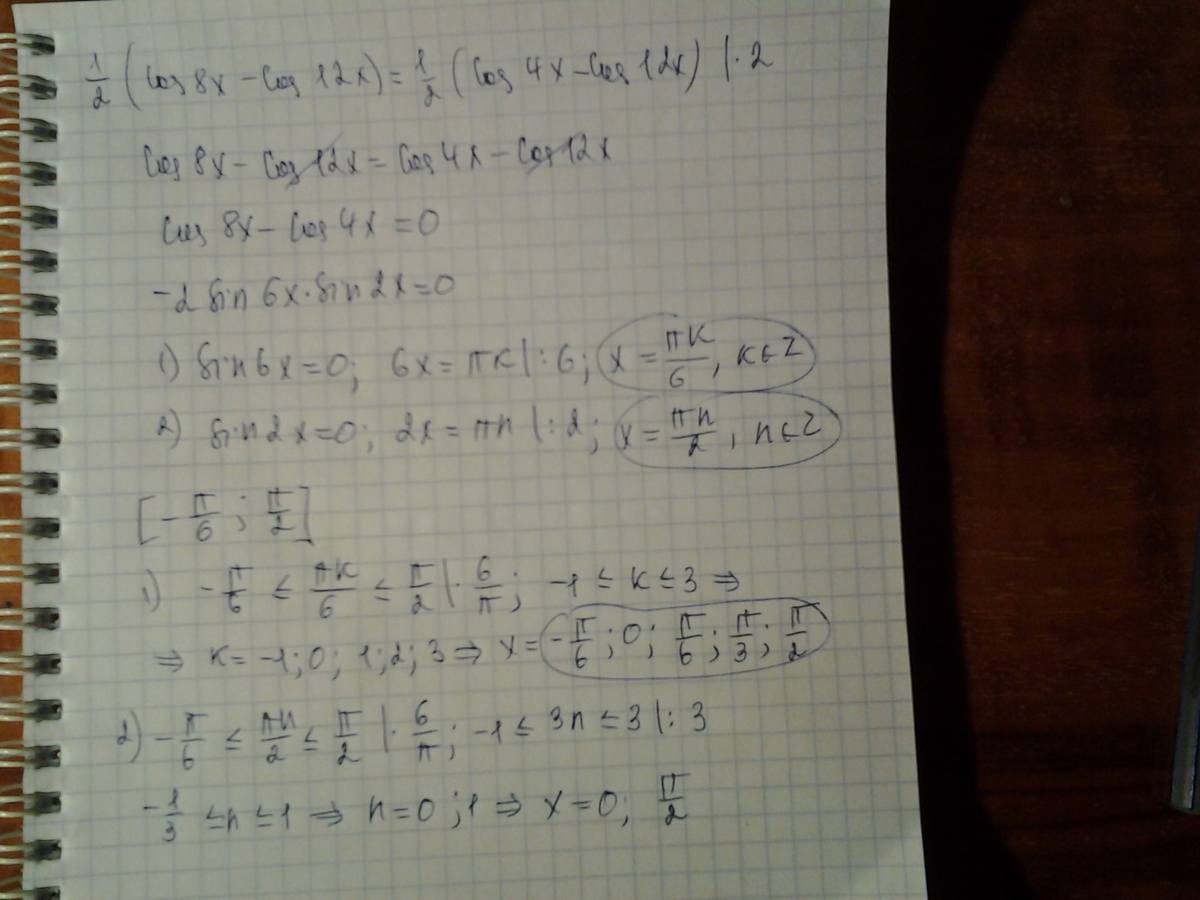 1/2 (cos 8x − cos 12x) = 1/2 (cos 4x − cos 12x) |·2
cos 8x − cos 12x = cos 4x − cos 12x
cos 8x − cos 4x = 0
−2 sin 6x · sin 2x = 0
1) sin 6x = 0; 6x = πk |:6; x = πk/6, k∈Z
2) sin 2x = 0; 2x = πn |:2; x = πn/2, n∈Z
[−π/6; π/2]
1) −π/6 ≤ πk/6 ≤ π/2 |· 6/π; −1 ≤ k ≤ 3 ⇒
⇒ k = −1; 0; 1; 2; 3 ⇒ x = −π/6; 0; π/6; π/3; π/2
2) −π/6 ≤ πn/2 ≤ π/2 |· 6/π; −1 ≤ 3n ≤ 3 |:3
−1/3 ≤ n ≤ 1 ⇒ n = 0; 1 ⇒ x = 0; π/2